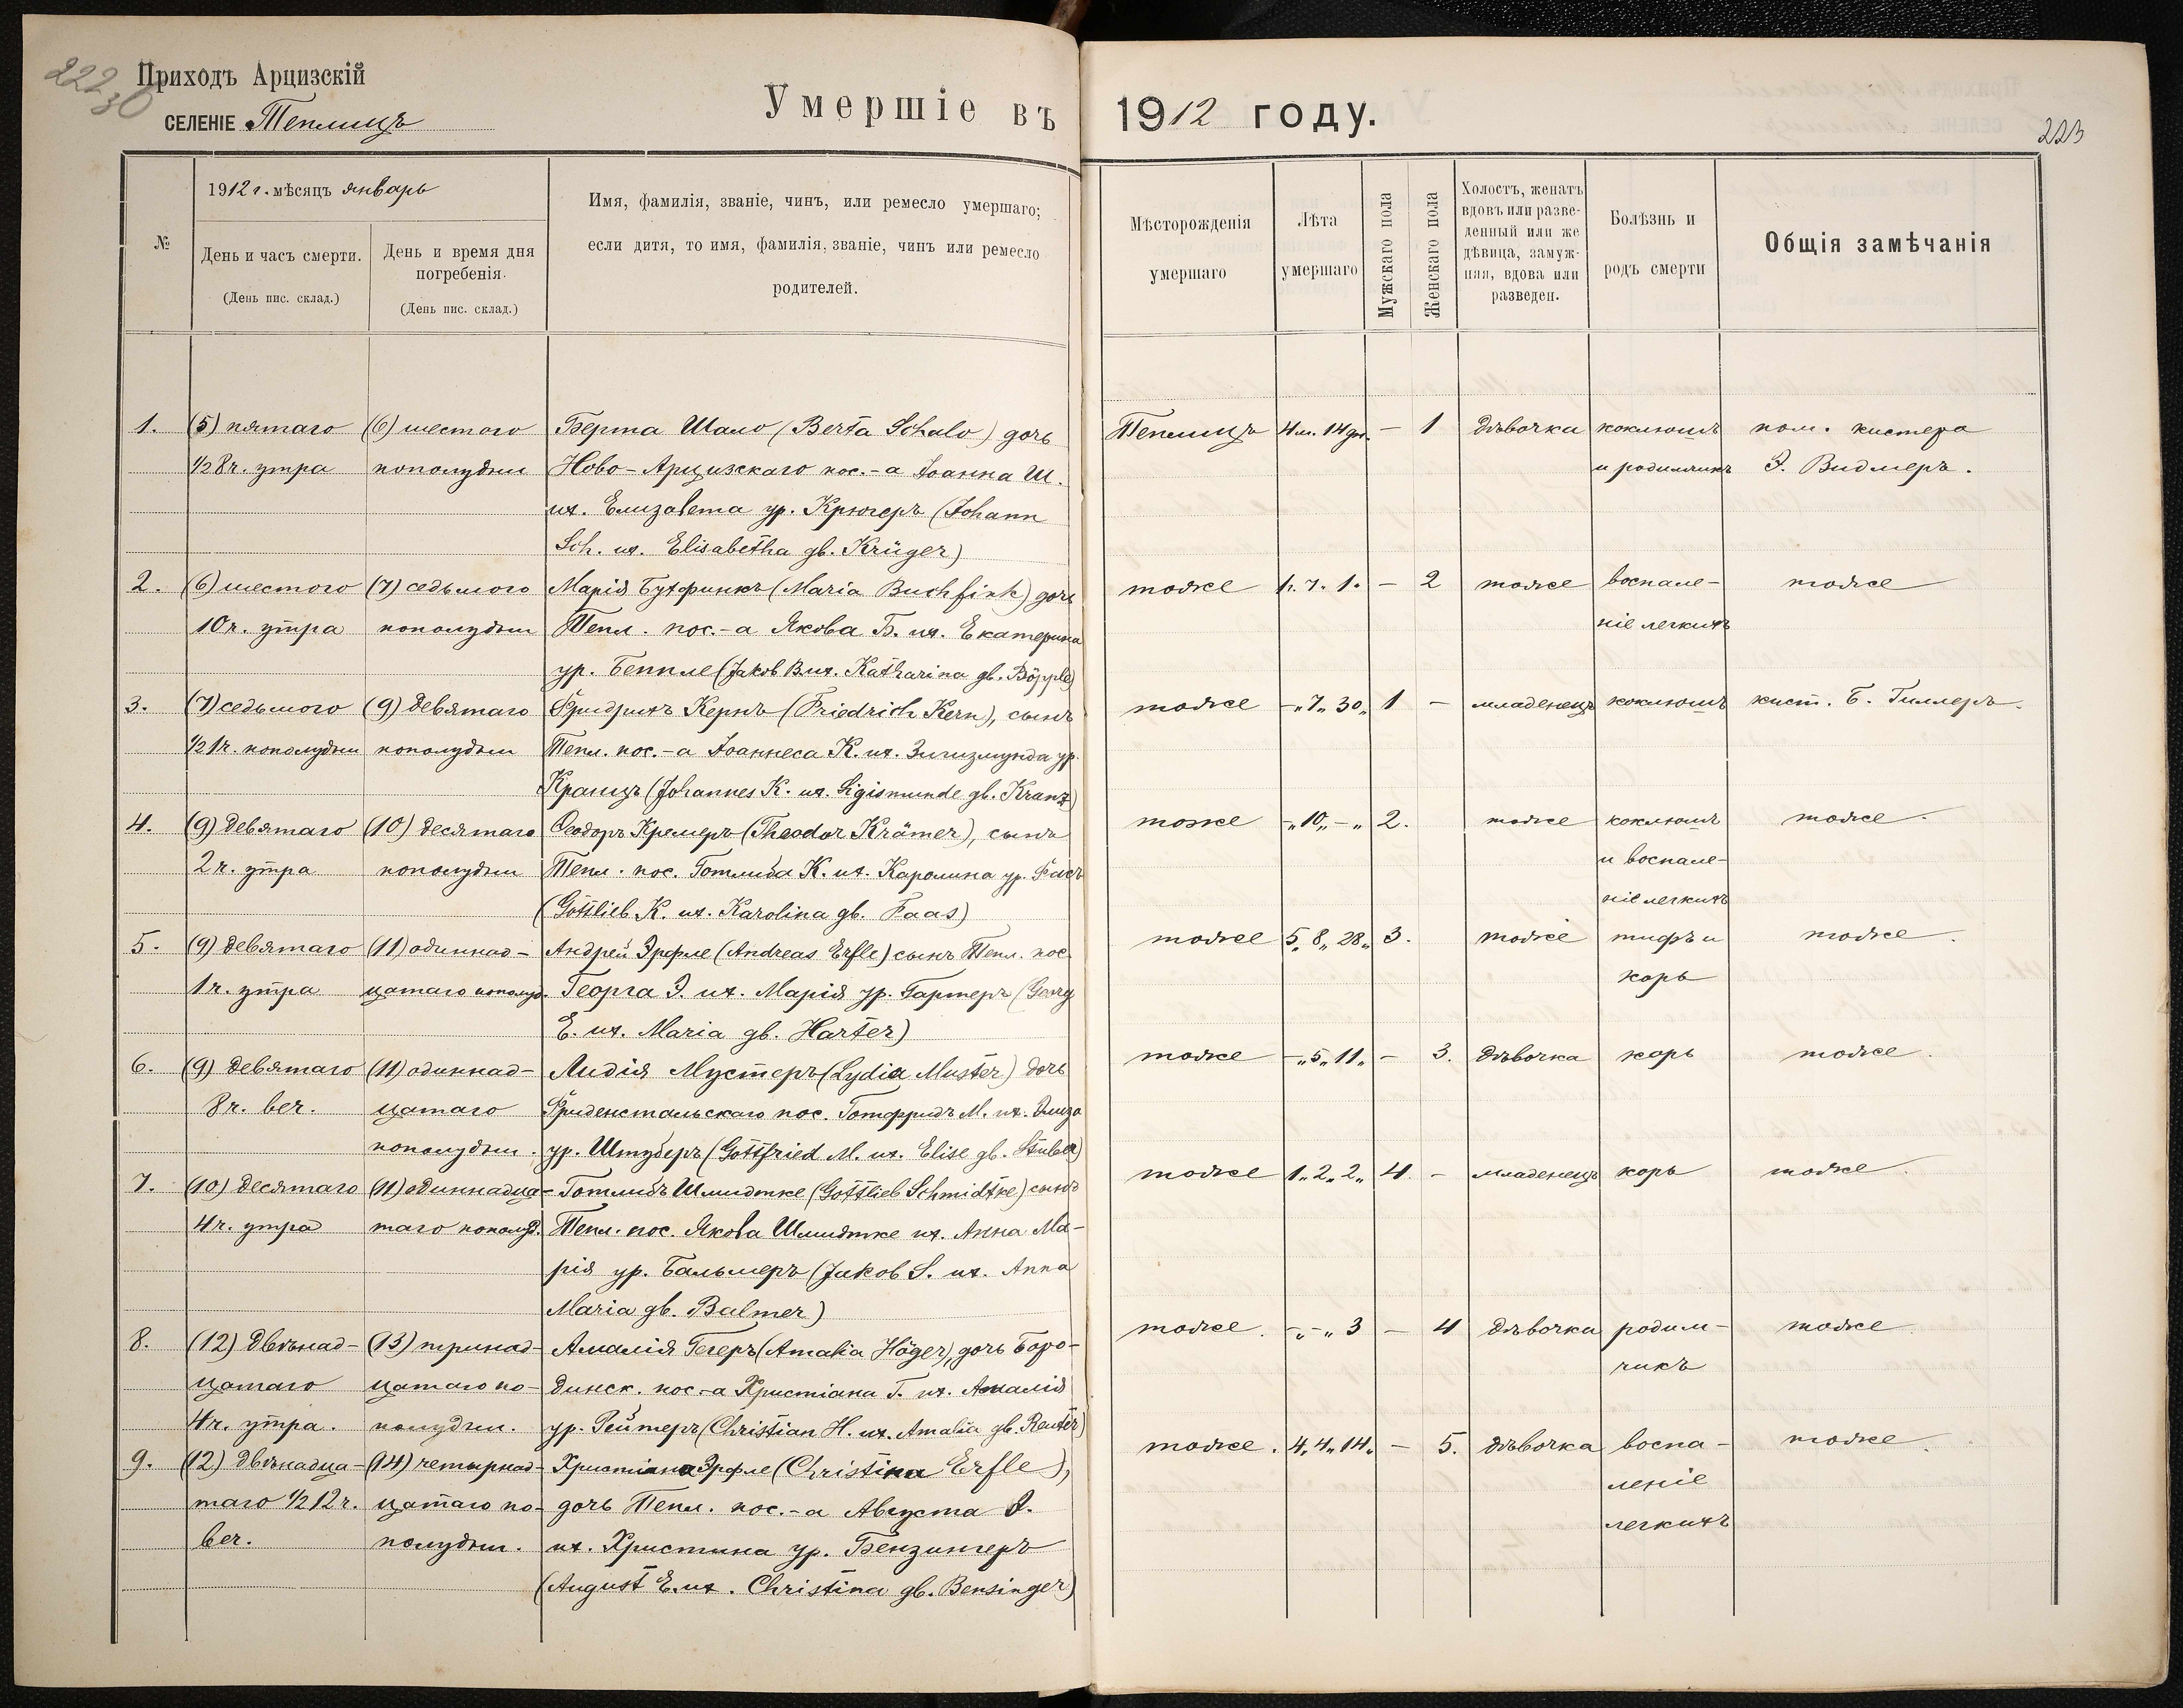 222
30
Приходъ Арцизскій
СЕЛЕНІЕ Теплицъ
Умершіе въ 1912 году.
223
№
1912 г. мѣсяцъ январь
День и часъ смерти.
(День пис. склад.)
День и время дня
погребенія.
(День пис. склад.)
Имя, фамилія, званіе, чинъ, или ремесло умершаго;
если дитя, то имя, фамилія, званіе, чинъ или ремесло
родителей.
Мѣсторожденія
умершаго
Лѣта
умершаго
Мужскаго пола
Женскаго пола
Холостъ, женатъ
вдовъ или разве-
денный или же
дѣвица, замуж-
няя, вдова или
разведен.
Болѣзнь и
родъ смерти
Общія замѣчанія
1. (5) пятаго (6) шестого Берта Шало (Berta Schalo) дочь Теплицъ 4 м. 14 дн. – 1 дѣвочка коклюшъ пом. кистера
½ 8 ч. утра пополудни Ново-Арцизскаго пос.-а Іоанна Ш. и родимчикъ Э. Видмеръ.
их. Елизавета ур. Крюгеръ (Johann
Sch. их. Elisabetha gb. Krüger)
2. (6) шестого (7) седьмого Марія Бухфинкъ (Maria Buchfink) дочь тоже 1. 7. 1. – 2 тоже воспале- тоже
10 ч. утра пополудни Тепл. пос.-а Якова Б. их. Екатерина ніе легкихъ
ур. Беппле (Jakob B. их. Katharina gb. Böpple)
3. (7) седьмого (9) девятаго Фридрихъ Кернъ (Friedrich Kern), сынъ тоже –„ 7„ 30„ 1 – младенецъ коклюшъ кист. Б. Гиллеръ.
½ 1 ч. пополудни пополудни Тепл. пос.-а Іоаннеса К. их. Зигизмунда ур.
Кранцъ (Johannes K. их. Sigismunde gb. Kranz)
4. (9) девятаго (10) десятаго Ѳеодоръ Кремеръ (Theodor Krämer), сынъ тоже –„ 10„ –„ 2. тоже коклюшъ тоже.
2 ч. утра пополудни Тепл. пос. Готлиба К. их. Каролина ур. Фасъ и воспале-
(Gottlieb K. их. Karolina gb. Faas) ніе легкихъ
5. (9) девятаго (11) одиннад- Андрей Эрфле (Andreas Erfle) сынъ Тепл. пос. тоже 5„ 8„ 28„ 3. тоже тифъ и тоже.
1 ч. утра цатаго пополуд. Георга Э. их. Марія ур. Гартеръ (Georg корь
E. их. Maria gb. Harter)
6. (9) девятаго (11) одиннад- Лидія Мустеръ (Lydia Muster) дочь тоже –„ 5„ 11„ – 3. дѣвочка корь тоже.
8 ч. веч. цатаго Фриденстальскаго пос. Готфридъ М. их. Элиза
пополудни. ур. Штуберъ (Gottfried M. их. Elise gb. Stuber)
7. (10) десятаго (11) одиннадца- Готлибъ Шмидтке (Gottlieb Schmidtke) сынъ тоже 1„ 2„ 2„ 4. – младенецъ корь тоже.
4 ч. утра таго пополуд. Тепл. пос. Якова Шмидтке их. Анна Ма-
рія ур. Бальмеръ (Jakob S. их. Anna
Maria gb. Balmer)
8. (12) двѣнад- (13) тринад- Амалія Гегеръ (Amalia Höger), дочь Боро- тоже. –„ –„ 3 – 4 дѣвочка родим- тоже
цатаго цатаго по- динск. пос.-а Христіана Г. их. Амалія чикъ
4 ч. утра. полудни. ур. Рейтеръ (Christian H. их. Amalia gb. Reuter)
9. (12) двѣнадца- (14) четырнад- Христіана Эрфле (Christina Erfle), тоже. 4„ 4„ 14„ – 5. дѣвочка воспа- тоже.
таго ½ 12 ч. цатаго по- дочь Тепл. пос.-а Августа Э. леніе
веч. полудни. их. Христина ур. Бензингеръ легкихъ
(August E. их. Christina gb. Bensinger)